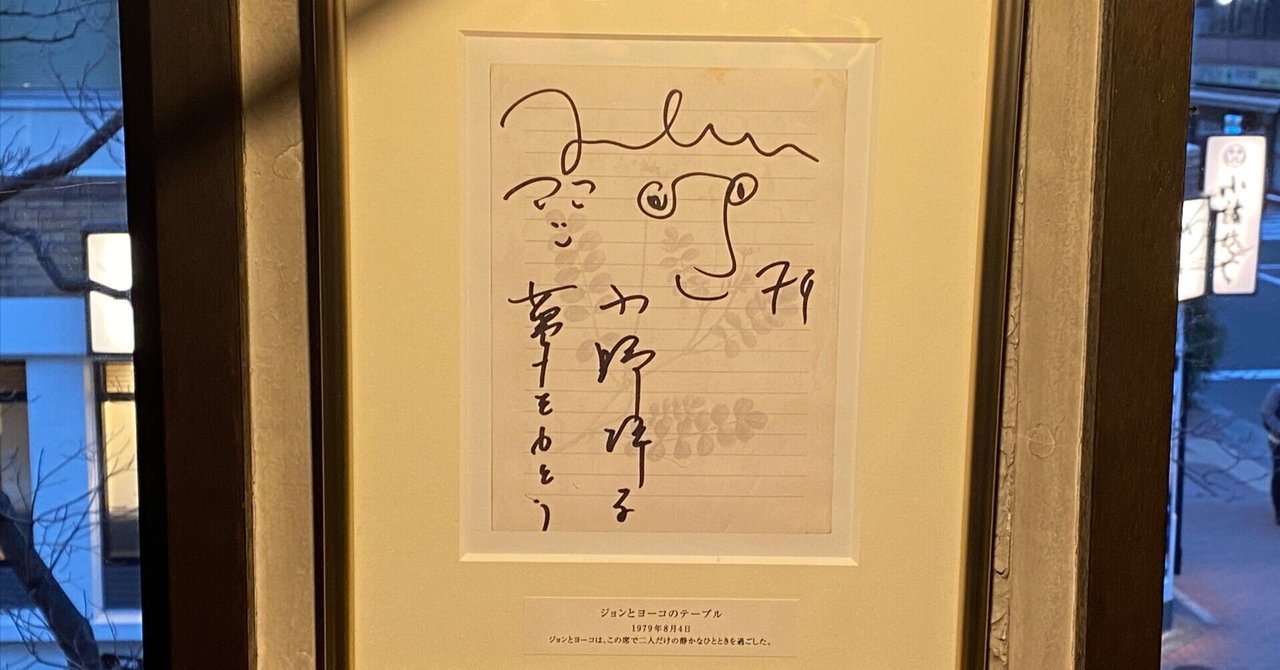 John
79
小野洋子
夢をもとう
ジョンとヨーコのテーブル
1979年8月4日
ジョンとヨーコは、この席で二人だけの静かなひとときを過ごした。